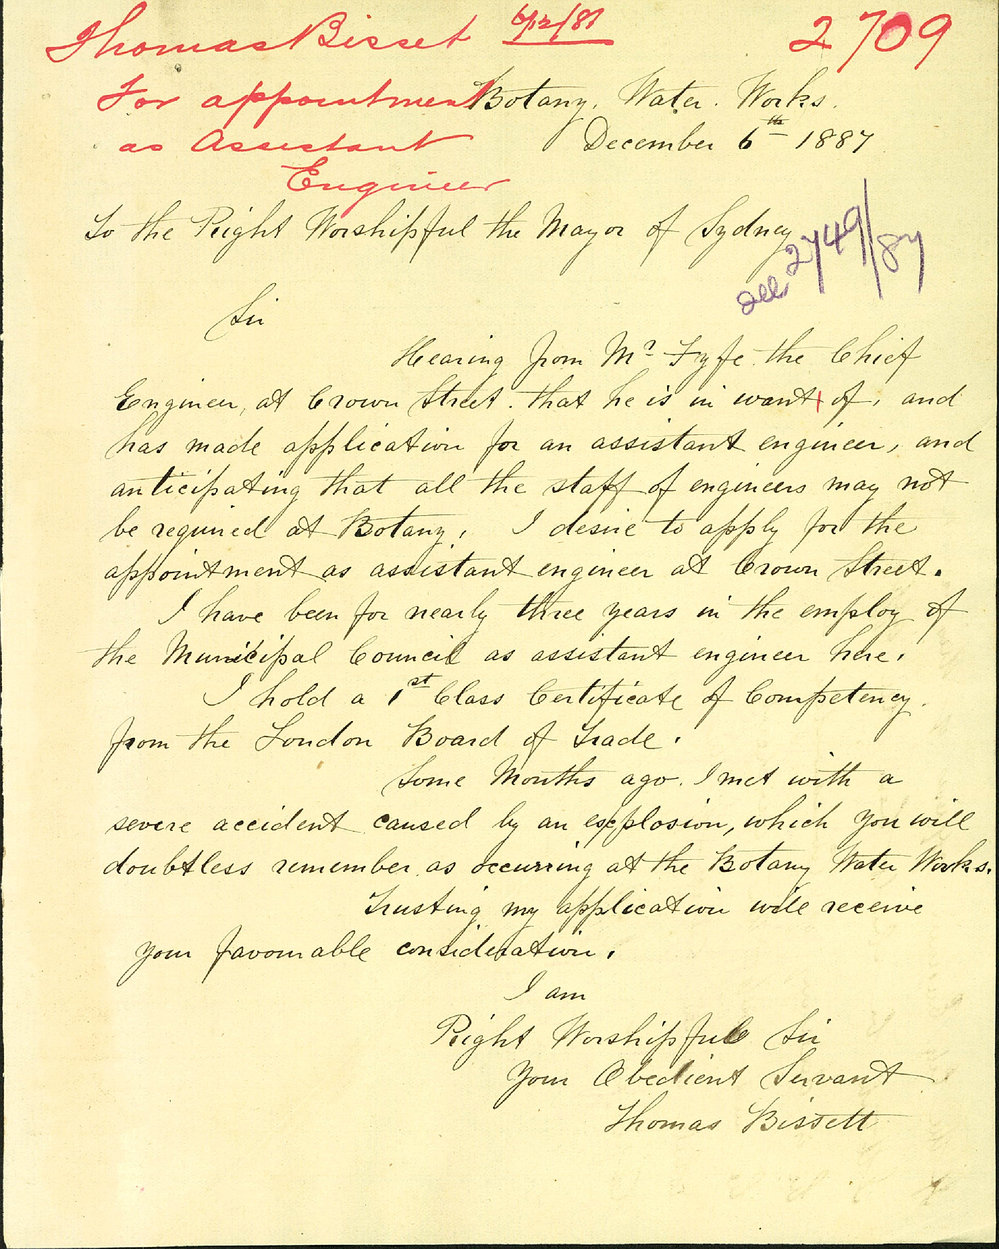 Thomas Bisset 6/12/87 2709
For appointment
as Assistant
Engineer
Botany. Water. Works.
December 6th 1887
To the Right Worshipful the Mayor of Sydney
2749/87
Sir
Hearing from Mr Fyfe. the Chief
Engineer, at Crown Street. that he is in want of, and
has made application for an assistant engineer, and
anticipating that all the staff of engineers may not
be required at Botany, I desire to apply for the
appointment as assistant engineer at Crown Street.
I have been for nearly three years in the employ of
the Municipal Council as assistant engineer here.
I hold a 1st Class Certificate of Competency.
from the London Board of Trade.
Some Months ago. I met with a
severe accident caused by an explosion, which you will
doubtless remember as occurring at the Botany Water Works.
Trusting my application will receive
your favourable consideration.
I am
Right Worshipful Sir
Your Obedient Servant
Thomas Bissett